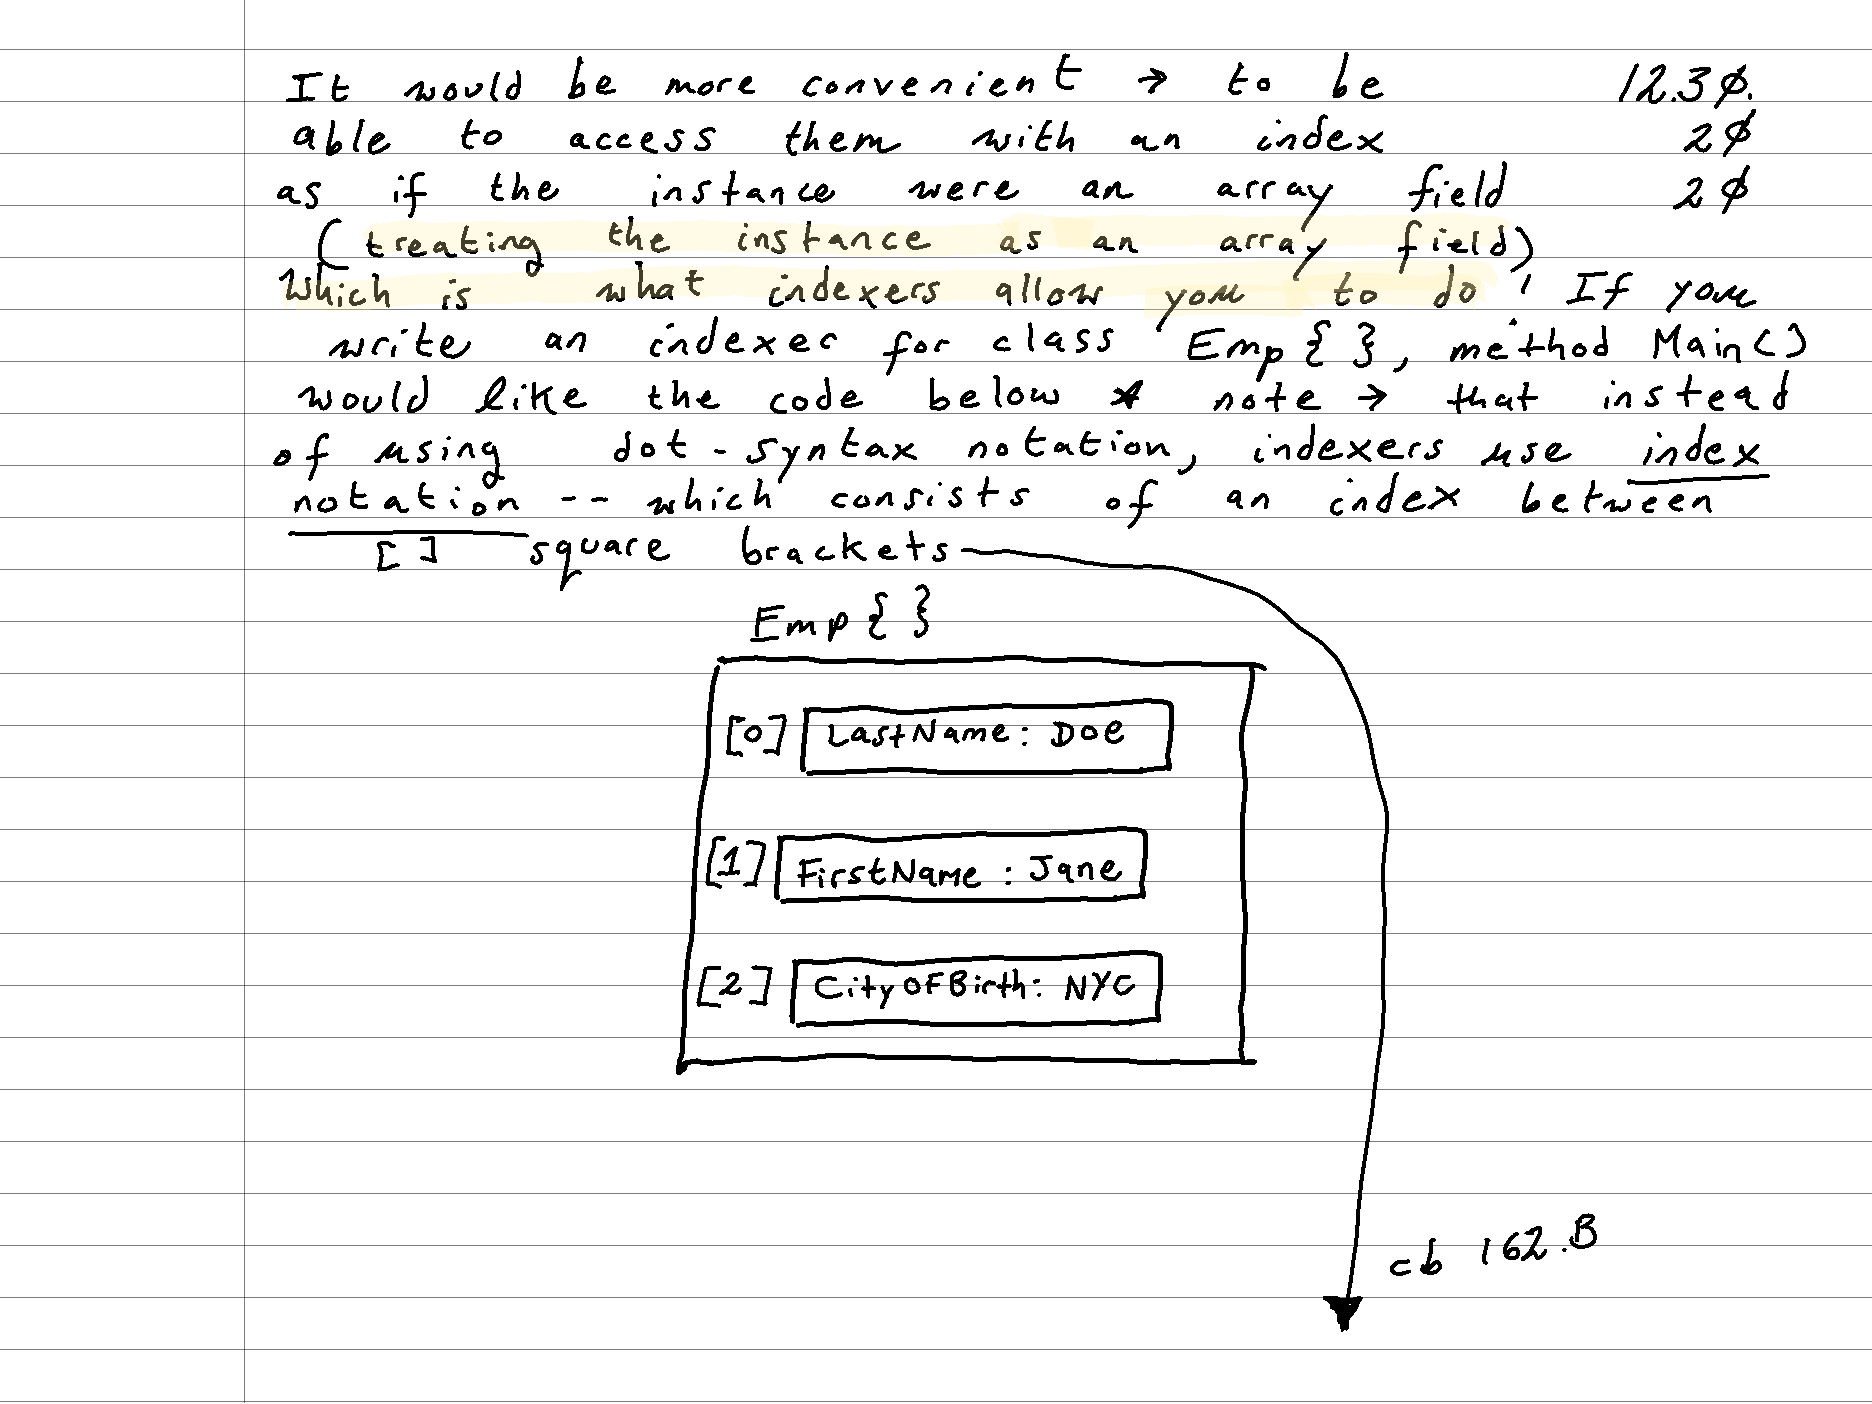 It would be more convenient → to be 12.3ø.
able to access them with an index 2ø
as if the instance were an array field 2ø
(treating the instance as an array field)
Which is what indexers allow you to do! If you
write an indexer for class Emp { }, method Main()
would like the code below * note → that instead
of using dot-syntax notation, indexers use index
notation -- which consists of an index between
[ ] square brackets
Emp { }
[0] LastName: Doe
[1] FirstName: Jane
[2] CityOFBirth: NYC
cb 162.B